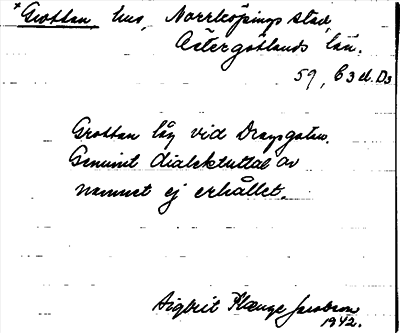 *Grottan, hus, Norrköpings stad,
Östergötlands län.
59, C3d. D3
Grottan låg vid Dragsgatan.
Genuint dialektuttal av
namnet ej erhållet.
Sigbrit Plænge Jacobson
1942.